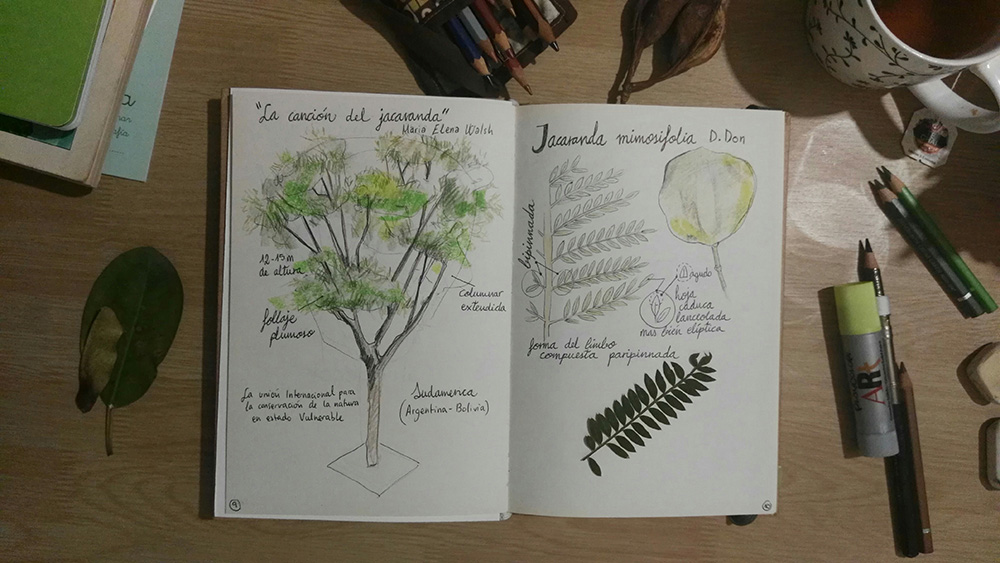 "La canción del jacaranda"
Maria Elena Walsh
12-15m
de altura
follaje
plumoso
columnar
extendida
La unión Internacional para
la conservación de la natura
en estado Vulnerable
Sudamerica
(Argentina-Bolivia)
9
Jacaranda mimosifolia D. Don
bipinnada
Agudo
hoja
caduca
lanceolada
mas bien elíptica
forma del limbo
compuesta paripinnada
10
ART